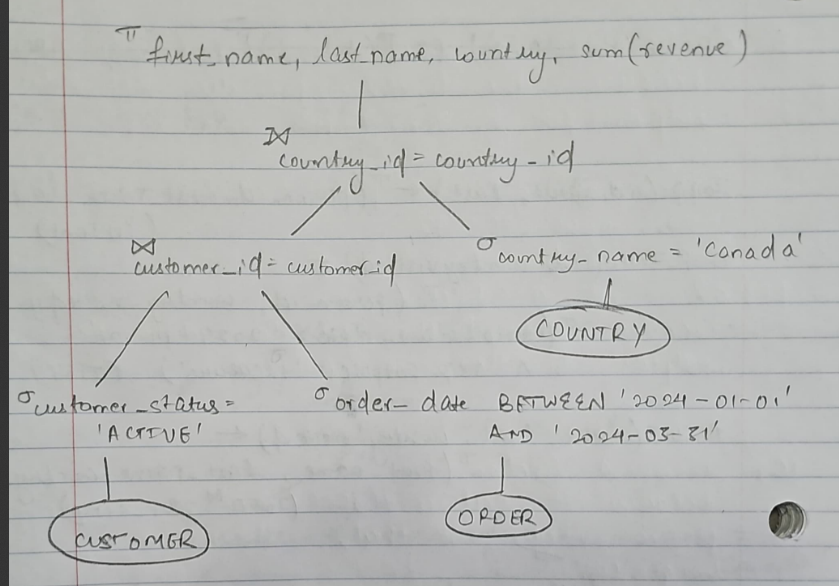 π first_name, last_name, country, sum(revenue)
⋈ country_id = country_id
⋈ customer_id = customer_id
σ country_name = 'Canada'
COUNTRY
σ customer_status = 'ACTIVE'
σ order_date BETWEEN '2024-01-01' AND '2024-03-31'
CUSTOMER
ORDER